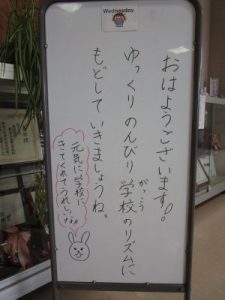 Wednesday
おはようございます!
ゆっくりのんびり学校のリズムに
がっこう
もどしていきましょうね。
元気に学校に
きてくれてうれしいな